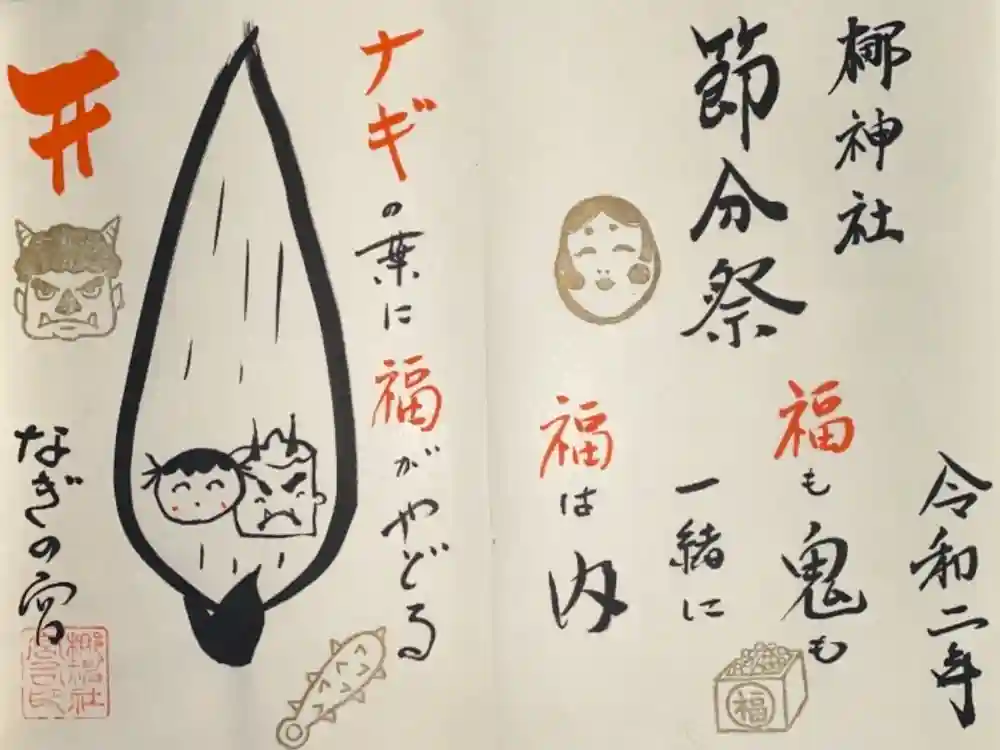 令和二年
梛神社
節分祭
福も鬼も
一緒に
福は内
福
ナギの葉に福がやどる
なぎの宿